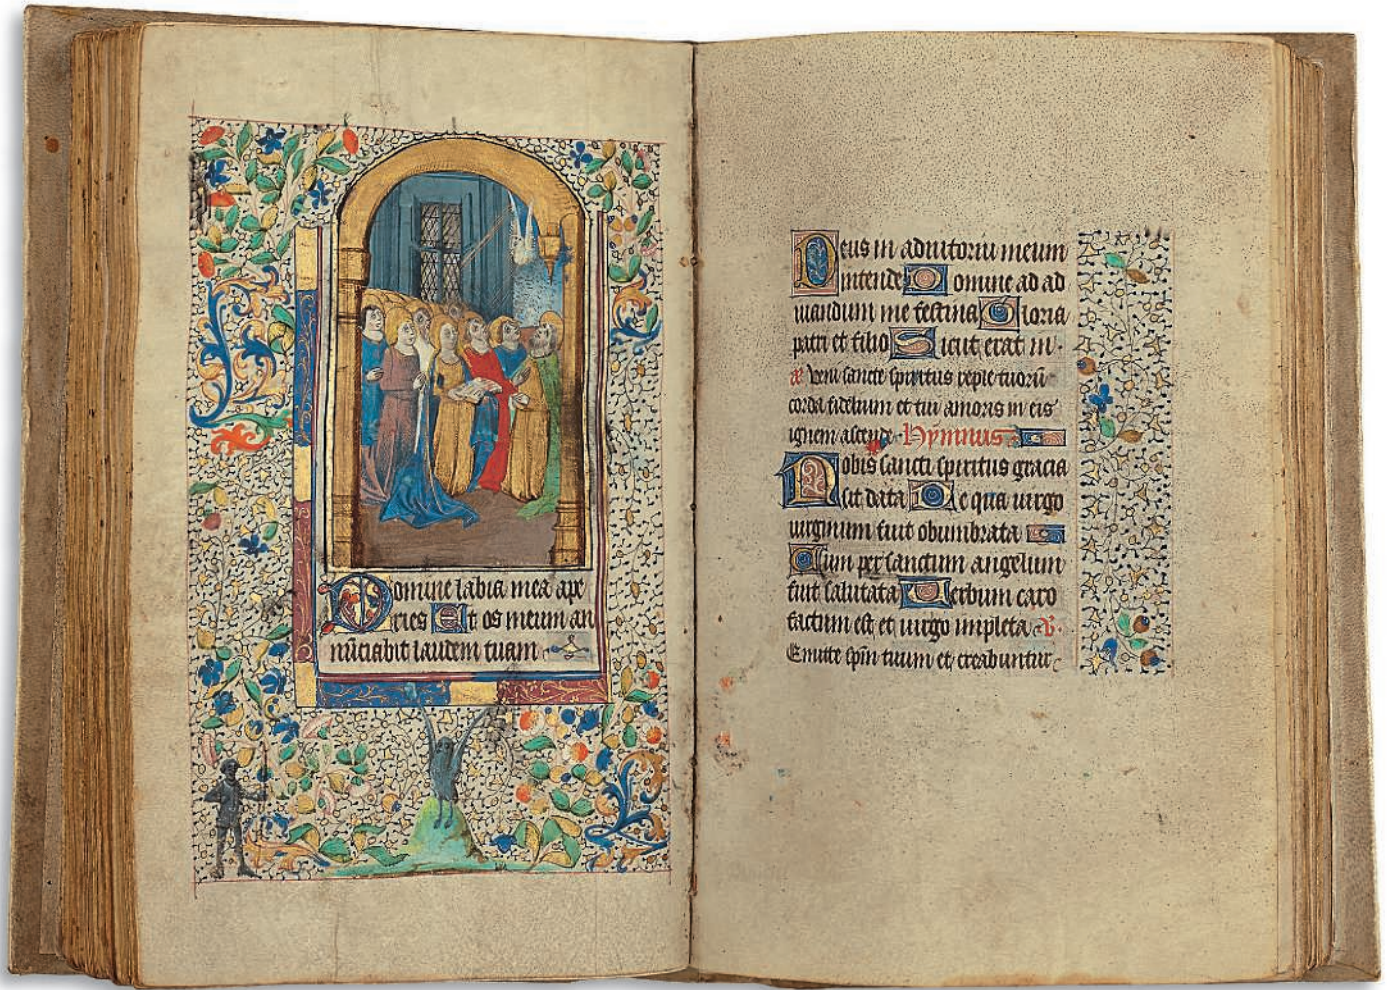 Domine labia mea ape
ries Et os meum an
nũciabit laudem tuam
Deus in adiutoriũ meum
intende Domine ad ad
iuuandum me festina Gloria
patri et filio Sicut erat in
Veni sancte spiritus reple tuorũ
corda fidelium et tui amoris in eis
ignem ascende Hymnus
Nobis sancti spiritus gracia
sit data De qua uirgo
uirginum fuit obumbrata
Cum per sanctum angelum
fuit salutata Uerbum caro
factum est et uirgo impleta ℣
Emitte sp̃m tuum et creabuntur